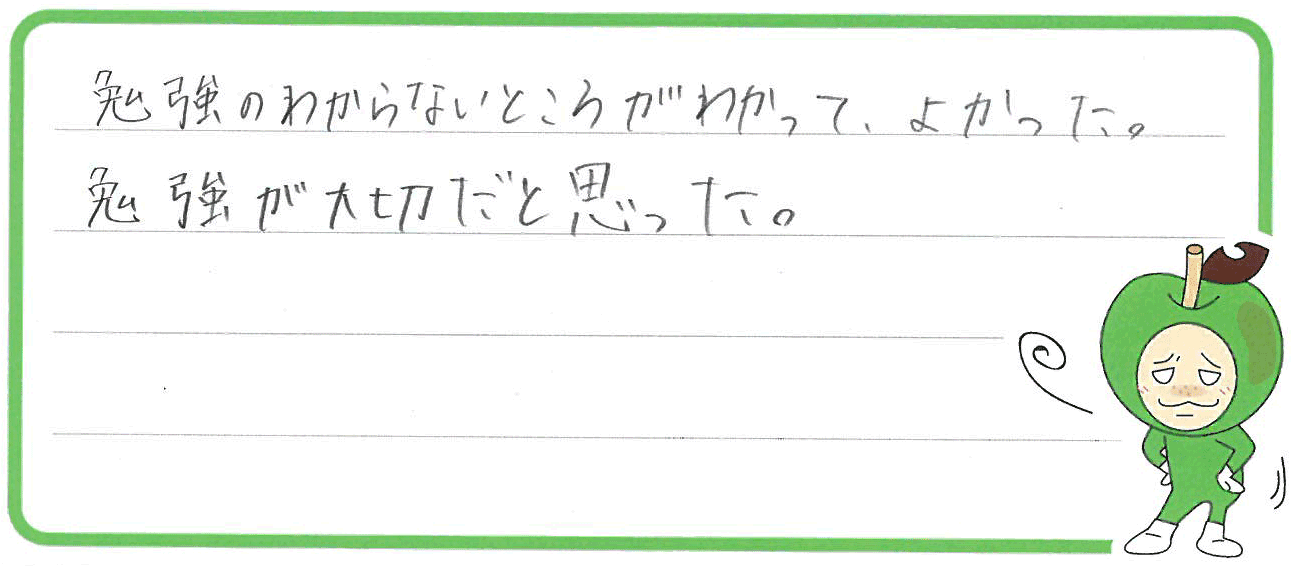 勉強のわからないところがわかって、よかった。
勉強が大切だと思った。